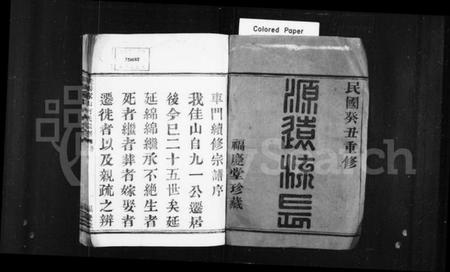 Colored Paper
民國癸丑重修
源遠流長
福慶堂珍藏
車門續修宗譜序
我佳山自九一公遷居
後今已二十五世矣延
延綿綿繼承不絕生者
死者繼者葬者嫁娶者
遷徙者以及親疏之辨